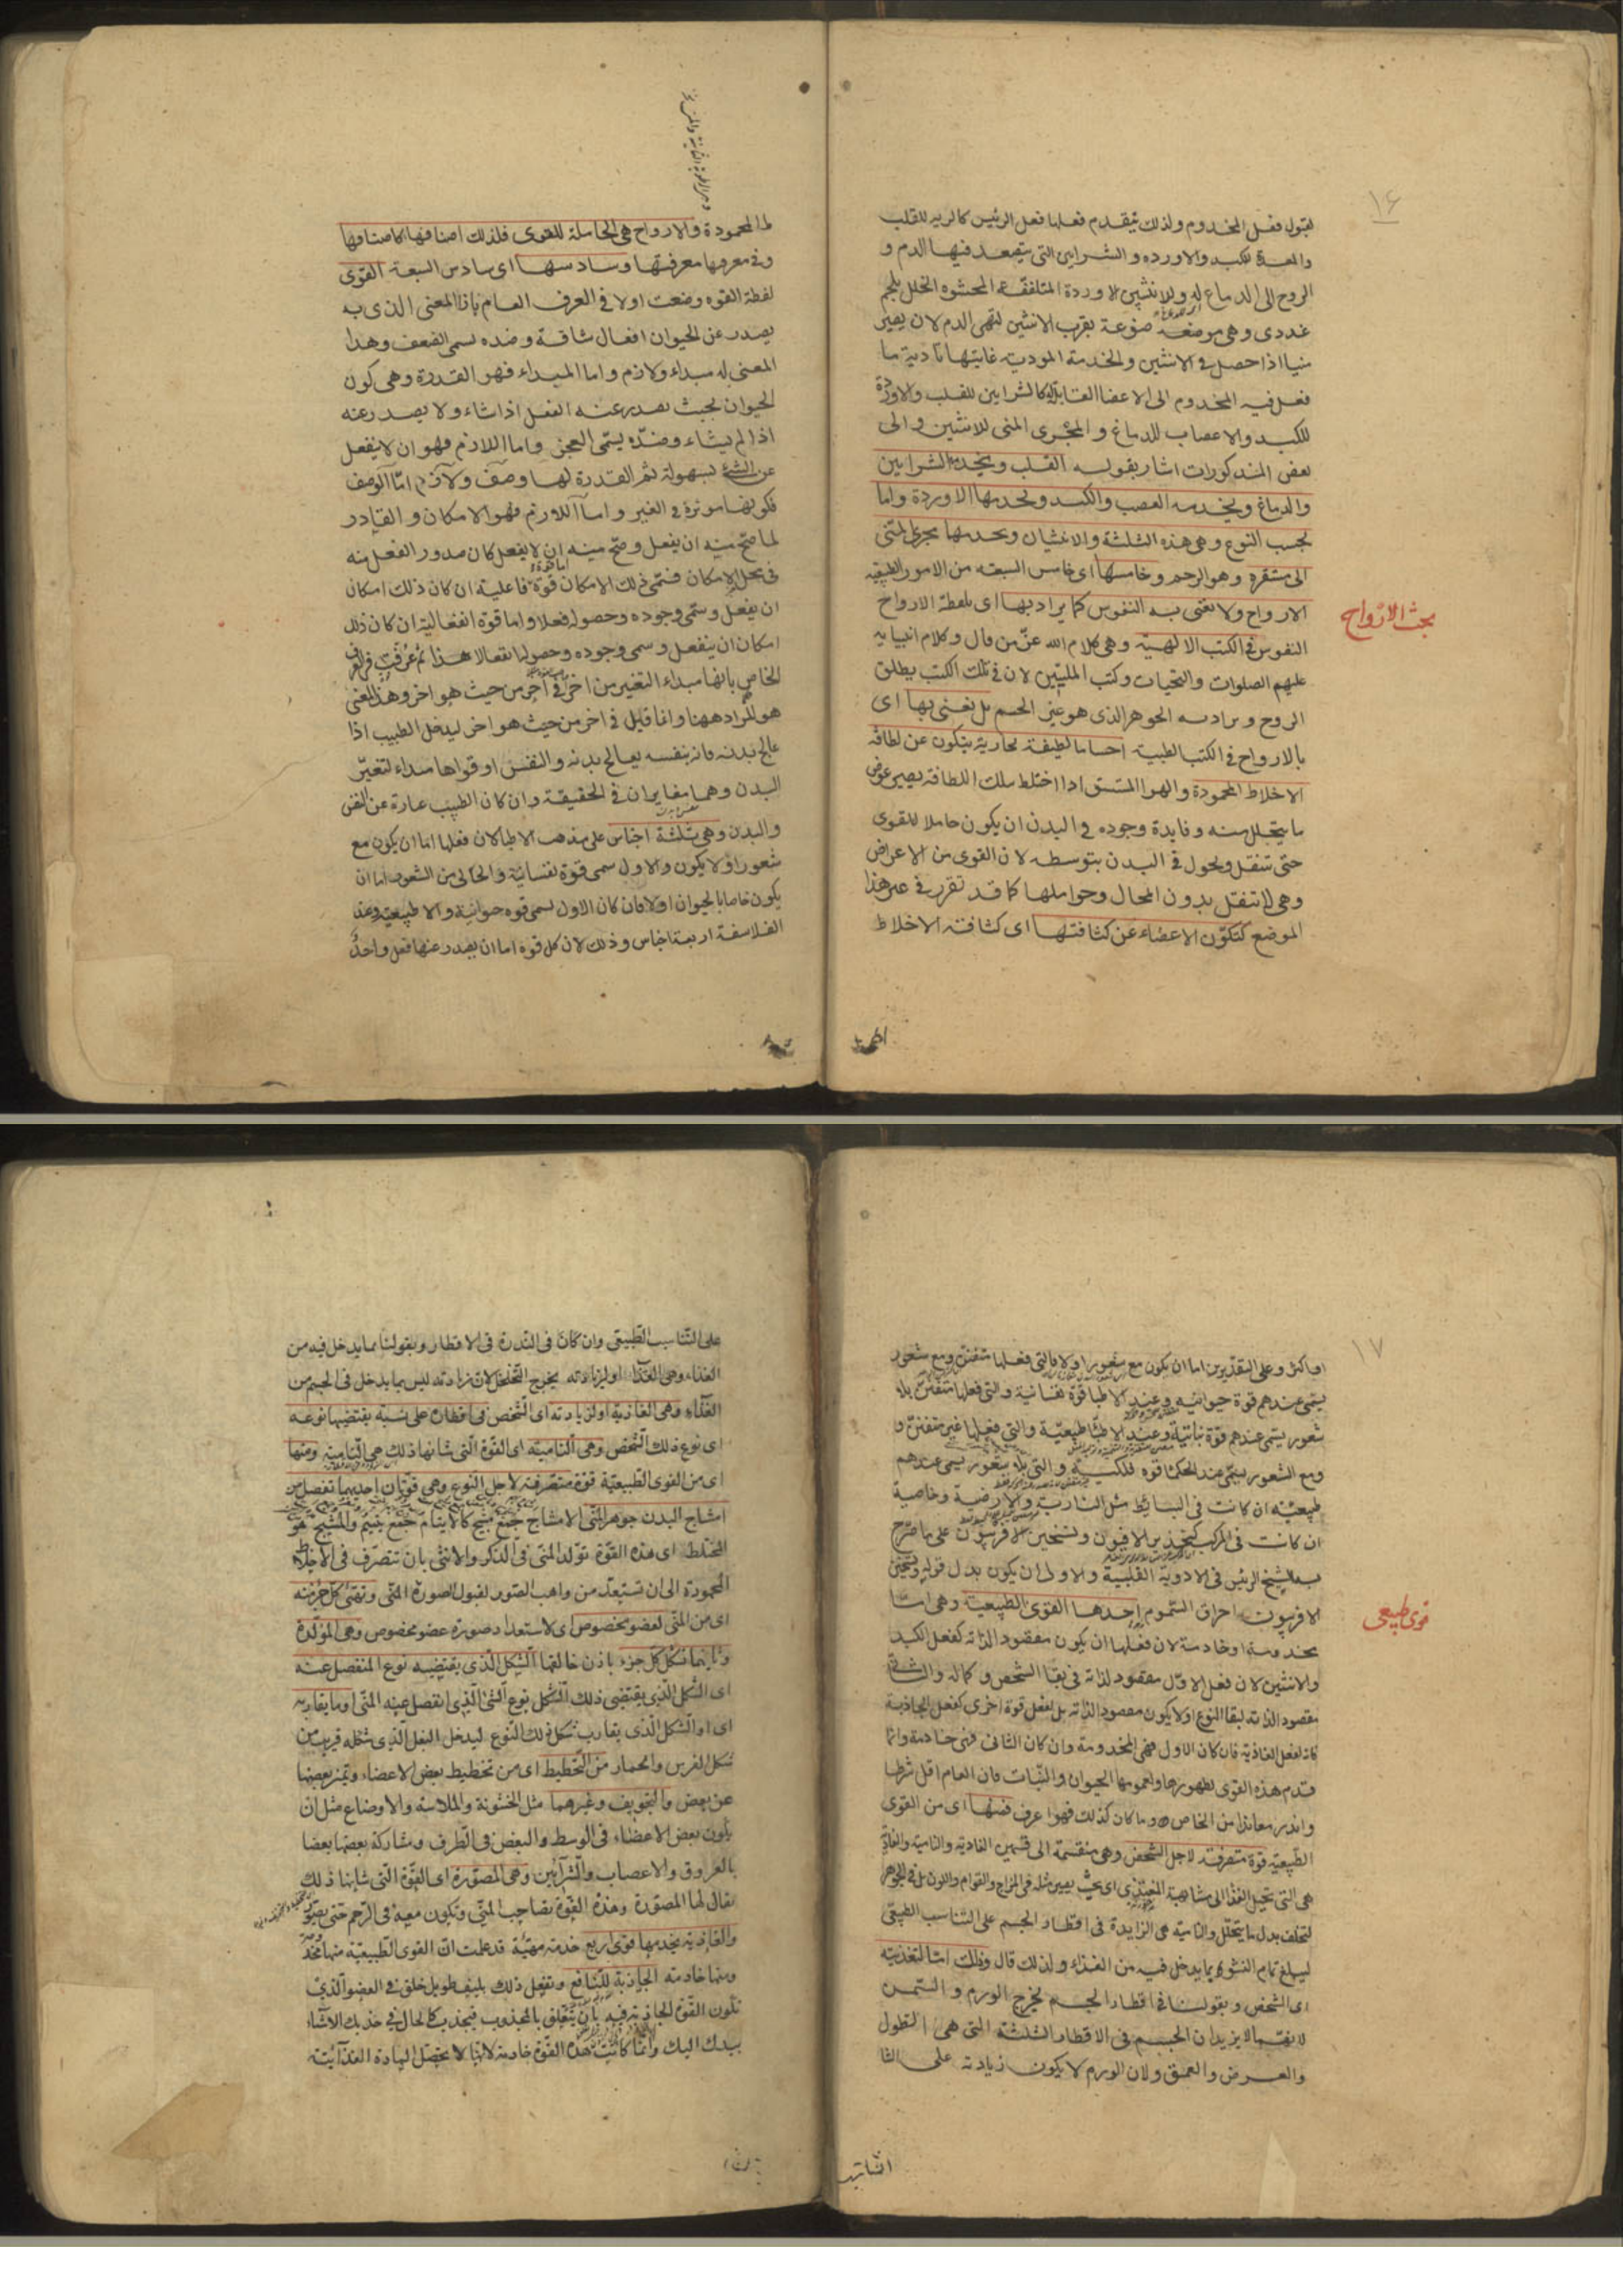 ١۶
لقبول فعل المخدوم ولذلك يتقدم فعلها فعل الرئيس كالريه للقلب
والمعدة للكبد والاورده والشرايين التى يتصعد فيها الدم و
الروح الى الدماغ له وللانثيين الاوردة المتلففة المحشوه الخلل بلحم
غددى وهى موضعه بقرب الانثيين لتهى الدم لان يصير
منيا اذا حصل فى الانثيين والخدمة المودية غايتها تادية ما
فعل فيه المخدوم الى الاعضا القابلة كالشرايين للقلب والاوردة
للكبد والاعصاب للدماغ والمجرى المنى للانثيين والى
بعض المذكورات اشار بقوله القلب ويخدمه الشرايين
والدماغ ويخدمه العصب والكبد ويخدمها الاوردة واما
بحسب النوع وهى هذه الثلثة والانثيان ويخدمها مجرى المنى
الى مستقره وهو الرحم وخامسها اى خامس السبعه من الامور الطبيعيه
بحث الارواح
الارواح ولا نعنى به النفوس كما يراد بها اى بلفظة الارواح
النفوس فى الكتب الالهية وهى كلام الله عز من قال وكلام انبيايه
عليهم الصلوات والتحيات وكتب المليين لان فى تلك الكتب يطلق
الروح ويراد به الجوهر الذى هو غير الجسم بل نعنى بها اى
بالارواح فى الكتب الطبية اجساما لطيفة بخارية يتكون عن لطافة
الاخلاط المحمودة والهوا المستنشق اذا اختلط بتلك اللطافة يصير عوض
ما يتحلل منه وفايدة وجوده فى البدن ان يكون حاملا للقوى
حتى تنتقل وتجول فى البدن بتوسطه لان القوى من الاعراض
وهى لا تنتقل بدون المحال وحواملها كما قد تقرر فى غير هذا
الموضع كتكون الاعضاء عن كثافتها اى كثافة الاخلاط
لها المحمودة والارواح هى الحاملة للقوى فلذلك اصنافها كاصنافها
وفى معرفها معرفتها وسادسها اى سادس السبعة القوى
لفظة القوه وضعت اولا فى العرف العام بازا المعنى الذى به
يصدر عن الحيوان افعال شاقة وضده يسمى الضعف وهذا
المعنى له مبداء ولازم واما المبداء فهو القدرة وهى كون
الحيوان بحيث يصدر عنه الفعل اذا شاء ولا يصدر عنه
اذا لم يشاء وضده يسمى العجز واما اللازم فهو ان لا ينفعل
عن الشئ بسهولة ثم القدرة لها وصف ولازم اما الوصف
فكونها موثرة فى الغير واما اللازم فهو الامكان والقادر
لما صح منه ان يفعل وصح منه ان لا يفعل كان صدور الفعل منه
فى محل الامكان فسمى ذلك الامكان قوة فاعلية ان كان ذلك امكان
ان يفعل وسمى وجوده وحصوله فعلا واما قوة انفعالية ان كان ذلك
امكان ان ينفعل وسمى وجوده وحصولها انفعالا هذا ثم عرفت فى العرف
الخاص بانها مبداء التغير من اخر فى اخر من حيث هو اخر وهذا المعنى
هو المراد ههنا وانما قيل فى اخر من حيث هو اخر ليدخل الطبيب اذا
عالج بدنه فانه بنفسه يعالج بدنه والنفس او قواها مبداء لتغير
البدن وهما مغايران فى الحقيقة وان كان الطبيب عبارة عن النفس
والبدن وهى ثلثة اجناس على مذهب الاطبا لان فعلها اما ان يكون مع
شعور او لا يكون والاول يسمى قوة نفسانية والخالى من الشعور اما ان
يكون خاصا بالحيوان اولا فان كان الاول يسمى قوه حيوانية والا طبيعية وعند
الفلاسفة اربعة اجناس وذلك لان كل قوه اما ان يصدر عنها فعل واحد
١٧
او اكثر وعلى التقديرين اما ان يكون مع شعور او لا فالتى فعلها متفنن ومع شعور
يسمى عندهم قوة حيوانيه وعند الاطبا قوة نفسانية والتى فعلها متفنن بلا
شعور يسمى عندهم قوة نباتية وعند الاطبا طبيعية والتى فعلها غير متفنن و
ومع الشعور يسمى عند الحكما قوه فلكية والتى بلا شعور يسمى عندهم
طبيعية ان كانت فى البسائط مثل النارية والارضية وخاصية
ان كانت فى المركب كتخدير الافيون وتسخين الافربيون على ما صرح
به الشيخ الرئيس فى الادوية القلبية والاولى ان يكون بدل قوله وتسخين
الافربيون احراق السموم احدها القوى الطبيعية وهى اما
قوى طبيعى
مخدومة او خادمة لان فعلها ان يكون مقصود لذاته كفعل الكبد
والانثيين لان فعل الاول مقصود لذاته فى بقا الشخص وكماله والثانى
مقصود لذاته لبقا النوع او لا يكون مقصود لذاته بل لفعل قوة اخرى كفعل الجاذبة
فانه لفعل الغاذية فان كان الاول فهى المخدومة وان كان الثانى فهى خادمة وانما
قدم هذه القوى لظهورها ولعمومها الحيوان والنبات فان العام اقل شرطا
واندر معاندا من الخاص وما كان كذلك فهو اعرف فمنها اى من القوى
الطبيعية قوة متصرفة لاجل الشخص وهى منقسمة الى قسمين الغاذية والنامية والغاذية
هى التى تحيل الغذا الى مشابهة المغتذى اى بحيث يصير مثله فى المزاج والقوام واللون بل فى الجوهر
لتخلف بدل ما يتحلل والنامية هى الزايدة فى اقطار الجسم على التناسب الطبيعى
ليبلغ تمام النشو بما يدخل فيه من الغذاء ولذلك قال وذلك اما لتغذيته
اى الشخص وبقولنا فى اقطار الجسم يخرج الورم والسمن
لانهما لا يزيدان الجسم فى الاقطار الثلثة التى هى الطول
والعرض والعمق ولان الورم لا يكون زيادته على التنا
على التناسب الطبيعى وان كان فى الندرة فى الاقطار وبقولنا بما يدخل فيه من
الغذاء وهى الغذاء او لزيادته يخرج التخلخل لان زيادته ليس بما يدخل فى الجسم من
الغذاء وهى الغاذية او لزيادته اى الشخص فى اقطاره على نسبة يقتضيها نوعه
اى نوع ذلك الشخص وهى النامية اى القوة التى شانها ذلك هى النامية ومنها
اى من القوى الطبيعية قوة متصرفة لاجل النوع وهى قوتان احديهما تفصل من
امشاج البدن جوهر المنى الامشاج جمع مشج كالايتام جمع يتيم والمشج هو
المختلط اى هذه القوة تولد المنى فى الذكر والانثى بان تتصرف فى الاخلاط
المحمودة الى ان تستعد من واهب الصور لقبول الصورة المنى وتهيئ كل جزء منه
اى من المنى لعضو مخصوص اى لاستعداد صورة عضو مخصوص وهى المولدة
وثانيهما تشكل كل جزء باذن خالقها الشكل الذى يقتضيه نوع المنفصل عنه
اى الشكل الذى يقتضى ذلك الشكل نوع الشئ الذى انفصل عنه المنى او ما يقاربه
اى او الشكل الذى يقارب شكل ذلك النوع ليدخل البغل الذى شكله قريب من
شكل الفرس والحمار من التخطيط اى من تخطيط بعض الاعضاء وتميز بعضها
عن بعض والتجويف وغيرهما مثل الخشونة والملاسة والاوضاع مثل ان
يكون بعض الاعضاء فى الوسط والبعض فى الطرف ومشاركة بعضها بعضا
بالعروق والاعصاب والشرآيين وهى المصورة اى القوة التى شانها ذلك
يقال لها المصورة وهذه القوة تصاحب المنى وتكون معه فى الرحم حتى
والغاذية يخدمها قوى اربع خدمة مهيئة قد علمت ان القوى الطبيعية منها مخدومة
ومنها خادمه الجاذبة للنافع وتفعل ذلك بليف طويل خلق فى العضو الذى
تكون القوة الجاذبة فيه بان يتعلق بالمجذوب فيجذب كالحال فى جذبك الاشياء
بيدك اليك وانما كانت هذه القوة خادمة لانها لا يحصل المادة الغذآئية